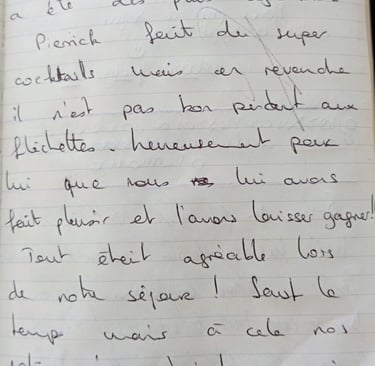 a été des plus
Pierrick fait du super
cocktails mais en revenche
il n'est pas bon perdent aux
fléchettes. heureusement pour
lui que nous lui avons
fait plaisir et l'avons laisser gagner!
Tout était agréable lors
de notre séjour! Sauf le
temps mais à cela nos